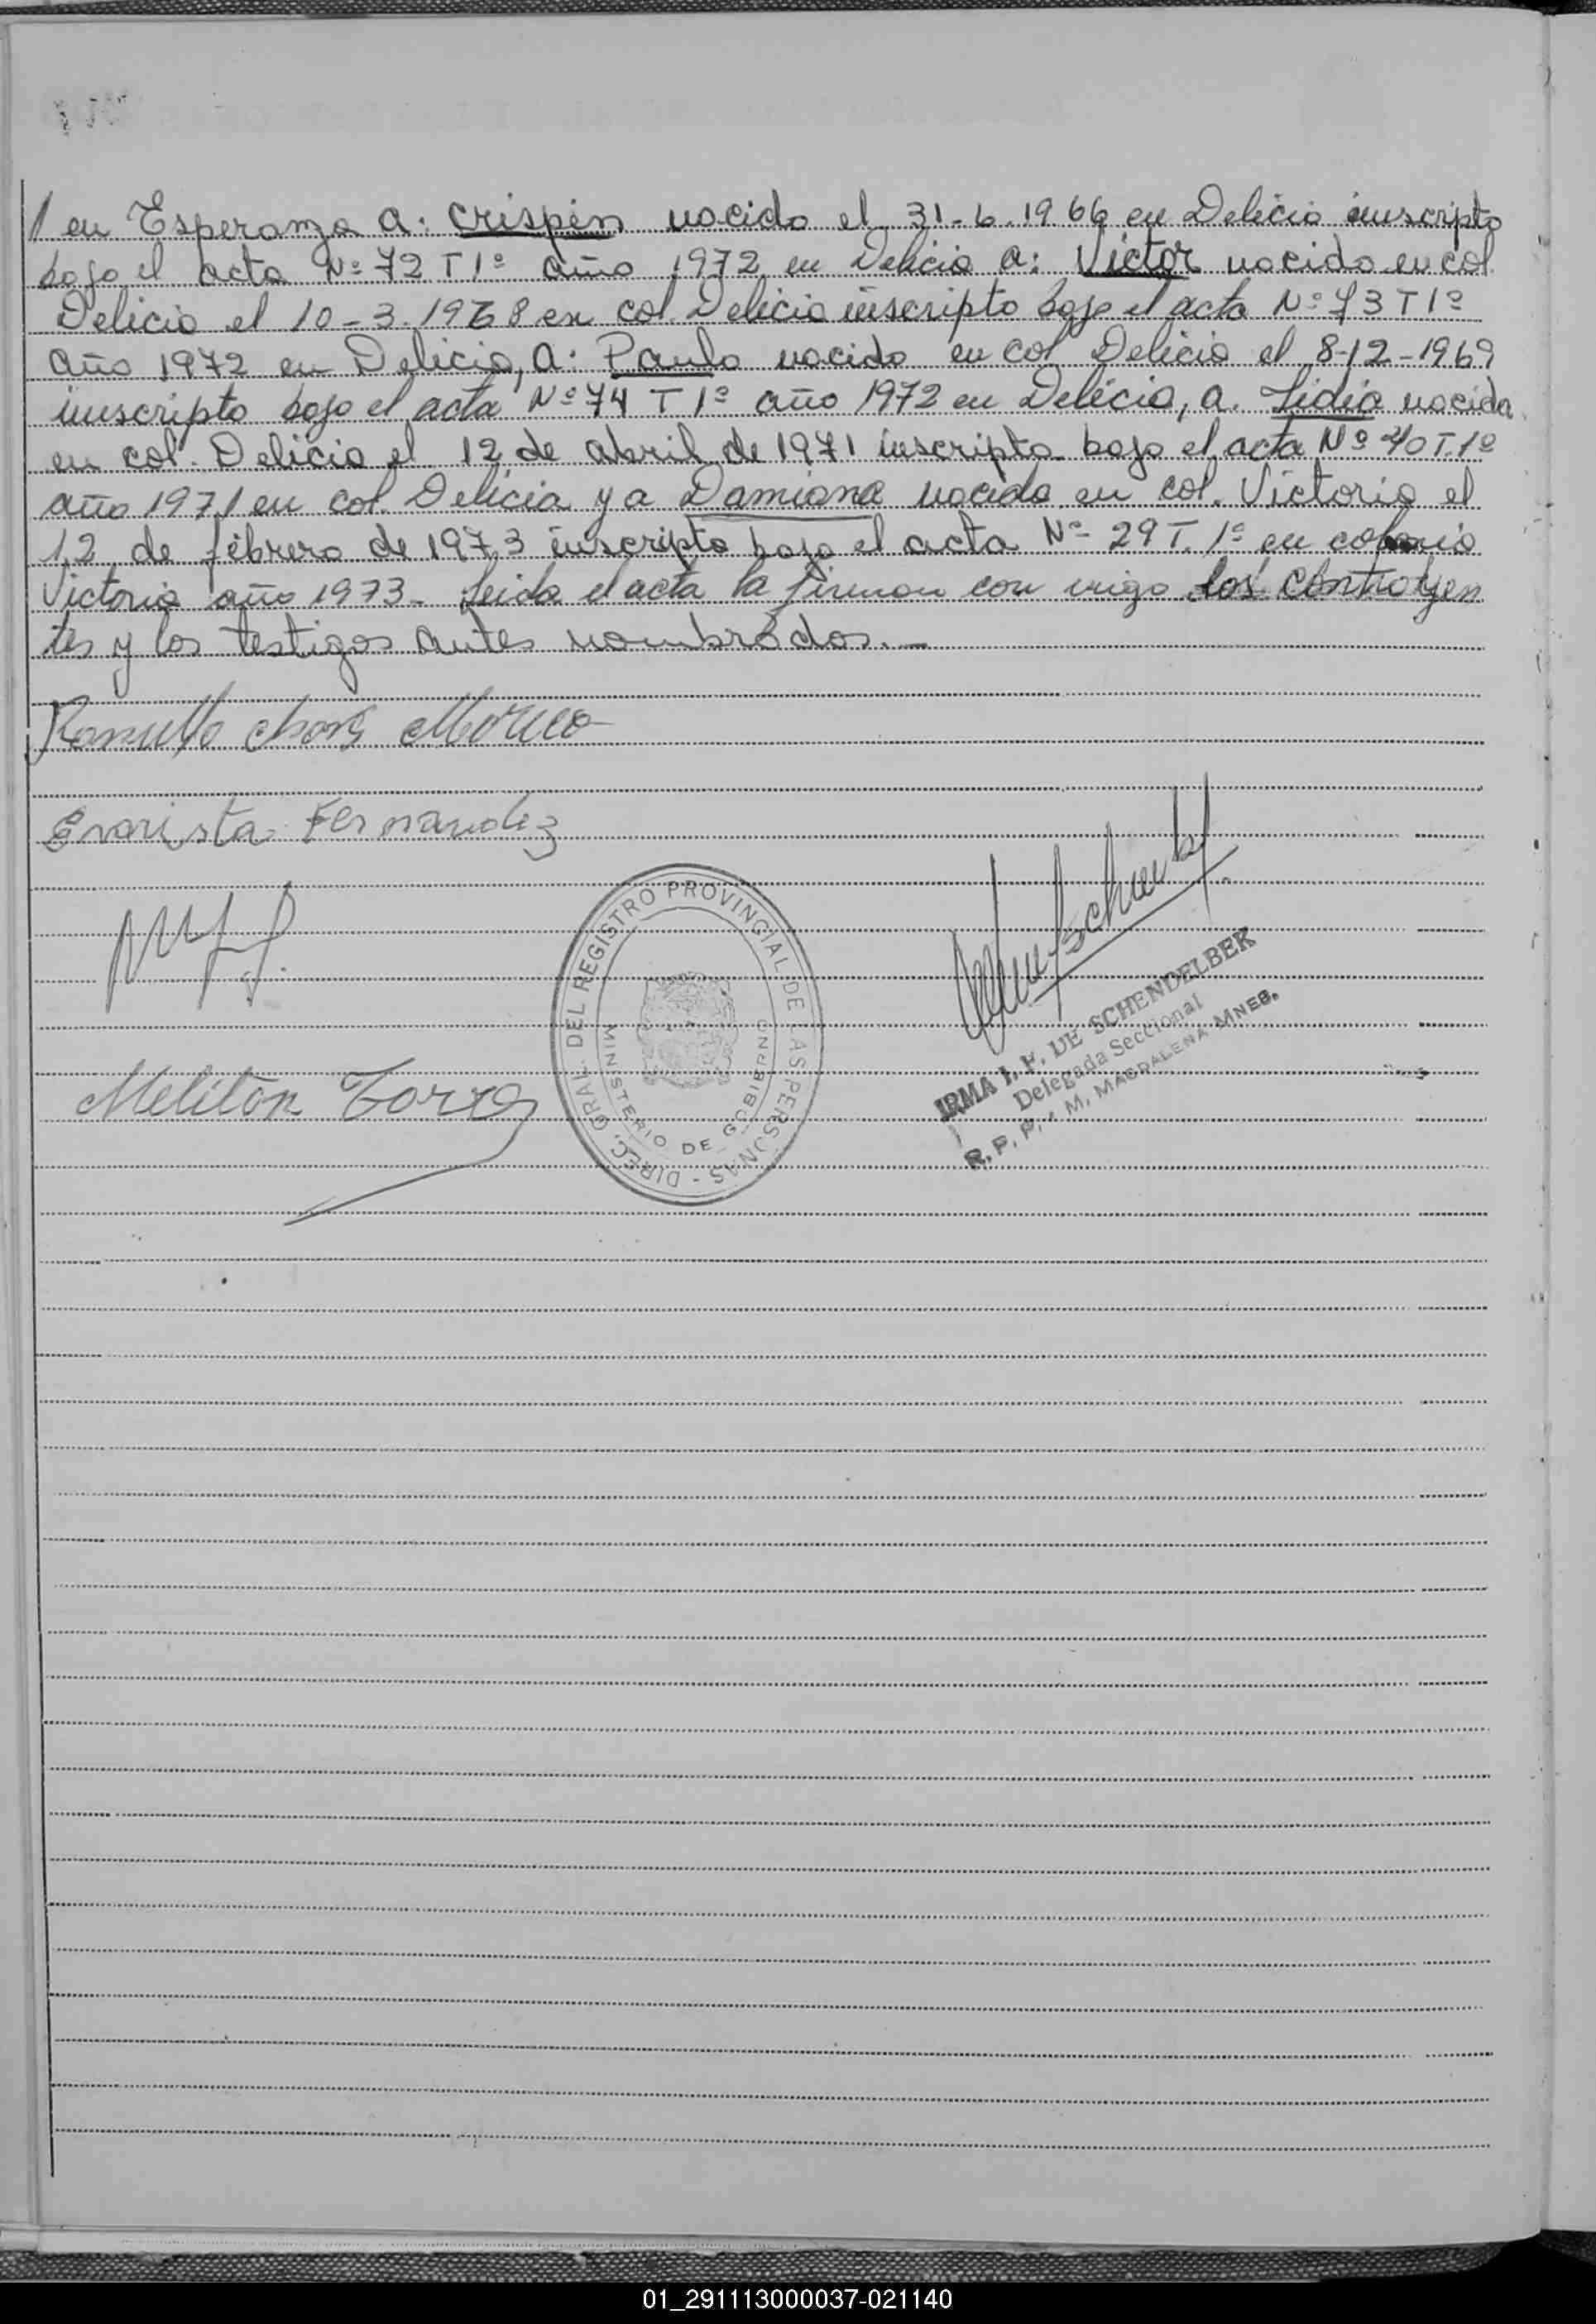 / en Esperanza a: Crispin nacido el 31-6-1966 en Delicia inscripto
bajo el acta Nº 72 T 1º año 1972 en Delicia a: Victor nacido en col
Delicia el 10-3-1968 en col. Delicia inscripto bajo el acta Nº 73 T 1º
año 1972 en Delicia, a: Paulo nacido en col Delicia el 8-12-1969
inscripto bajo el acta Nº 74 T 1º año 1972 en Delicia, a. Lidia nacida
en col. Delicia el 12 de abril de 1971 inscripta bajo el acta Nº 40 T. 1º
año 1971 en col. Delicia y a Damiana nacida en col. Victoria el
12 de febrero de 1973 inscripta bajo el acta Nº 29 T. 1º en colonia
Victoria año 1973 - Leida el acta la firman con migo los contrayen
tes y los testigos antes nombrados. -
Evarista Fernandez
Meliton Torres
DIREC. GRAL. DEL REGISTRO PROVINCIAL DE LAS PERSONAS -
MINISTERIO DE GOBIERNO
IRMA I. F. DE SCHENDELBEK
Delegada Seccional
R. P. P. M. MAGDALENA MNES.
01_291113000037-021140